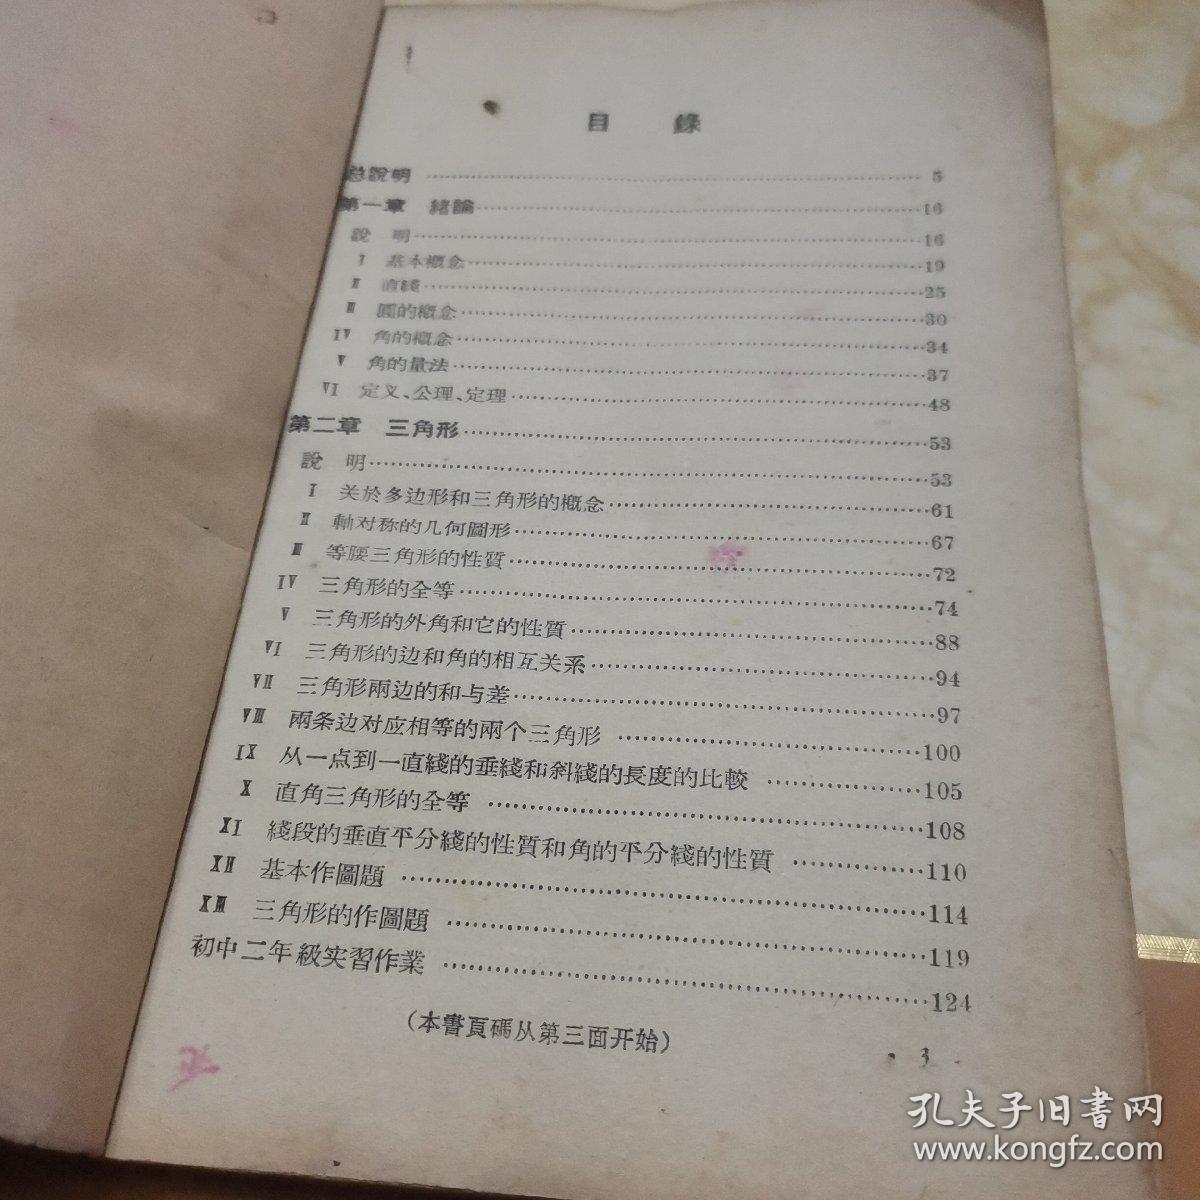 目 錄
总說明 5
第一章 緒論 16
說 明 16
I 基本概念 19
II 直綫 25
III 圓的概念 30
IV 角的概念 34
V 角的量法 37
VI 定义、公理、定理 48
第二章 三角形 53
說 明 53
I 关於多边形和三角形的概念 61
II 軸对称的几何圖形 67
III 等腰三角形的性質 72
IV 三角形的全等 74
V 三角形的外角和它的性質 88
VI 三角形的边和角的相互关系 94
VII 三角形兩边的和与差 97
VIII 兩条边对应相等的兩个三角形 100
IX 从一点到一直綫的垂綫和斜綫的長度的比較 105
X 直角三角形的全等 108
XI 綫段的垂直平分綫的性質和角的平分綫的性質 110
XII 基本作圖題 114
XIII 三角形的作圖題 119
初中二年級实習作業 124
(本書頁碼从第三面开始)
• 3 •
孔夫子旧书网
www.kongfz.com